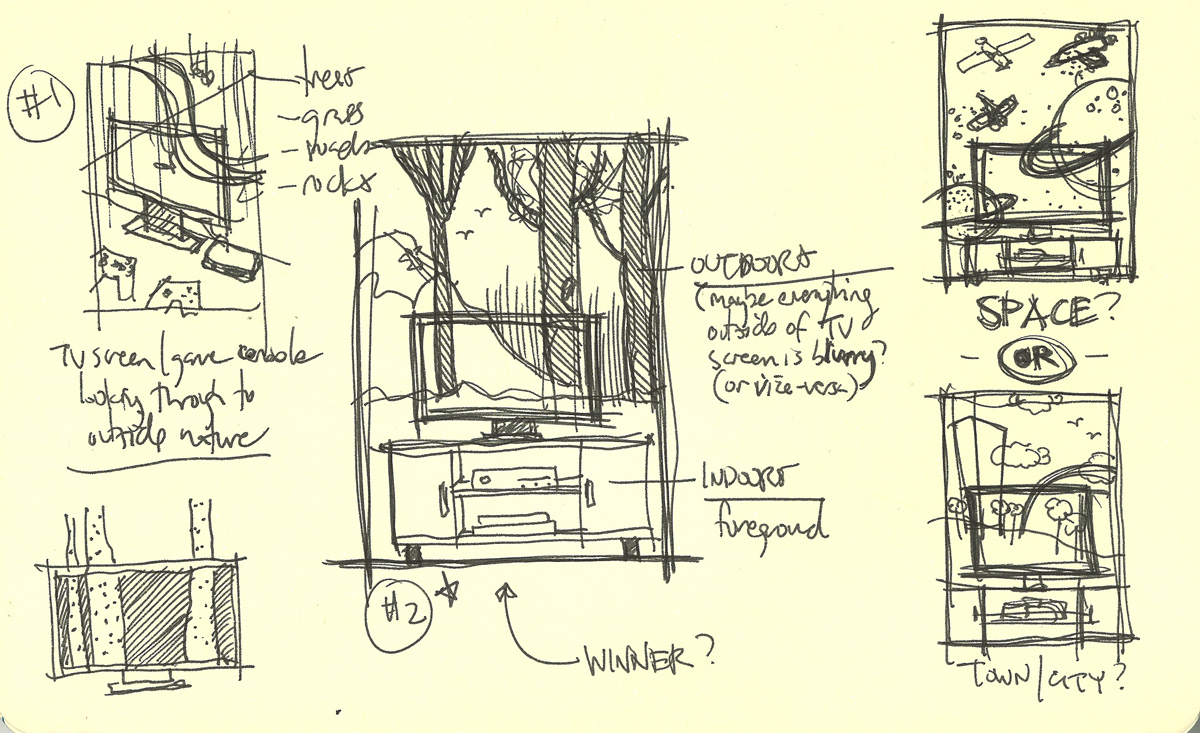 #1
trees
- grass
- roads
- rocks
TV screen/game console
looking through to
outside nature
#2
WINNER?
OUTDOORS
(maybe everything
outside of TV
screen is blurry?
(or vice-versa)
INDOORS
foreground
SPACE?
- OR -
TOWN/CITY?